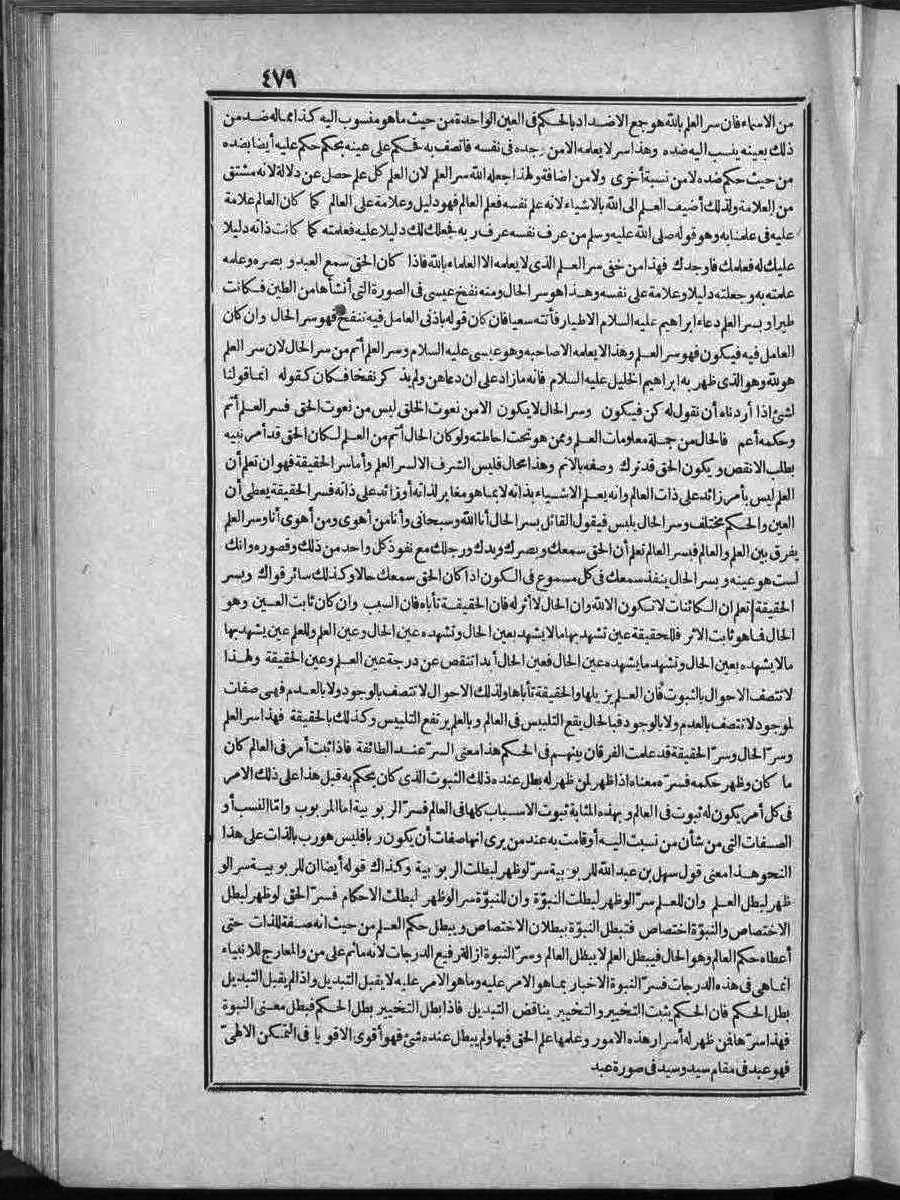 ٤٧٩
من الاسماء فان سر العلم بالله هو جمع الاضداد بالحكم فى العين الواحدة من حيث ما هو منسوب اليه كذا مماله ضد من
ذلك بعينه ينسب اليه ضده وهذا سر لا يعلمه الا من وجده فى نفسه فاتصف به فحكم على عينه بحكم حكم عليه أيضا بضده
من حيث حكم ضده لا من نسبة أخرى ولا من اضافة ولهذا جعله الله سر العلم لان العلم كل علم حصل عن دلالة لانه مشتق
من العلامة ولذلك أضيف العلم الى الله بالاشياء لانه علم نفسه فعلم العالم فهو دليل وعلامة على العالم كما كان العالم علامة
عليه فى علمنا به وهو قوله صلى الله عليه وسلم من عرف نفسه عرف ربه فجعلك لك دليلا عليه فعلمته كما كانت ذاته دليلا
عليك له فعلمك فاوجدك فهذا من خفى سر العلم الذى لا يعلمه الا العلماء بالله فاذا كان الحق سمع العبد وبصره وعلمه
علمته به وجعلته دليلا وعلامة على نفسه وهذا هو سر الحال ومنه نفخ عيسى فى الصورة التى أنشأها من الطين فكانت
طيرا وبسر العلم دعاء ابراهيم عليه السلام الاطيار فأتته سعيا فان كان قوله باذنى العامل فيه تنفخ فهو سر الحال وان كان
العامل فيه فيكون فهو سر العلم وهذا لا يعلمه الا صاحبه وهو عيسى عليه السلام وسر العلم أتم من سر الحال لان سر العلم
هو لله وهو الذى ظهر به ابراهيم الخليل عليه السلام فانه ما زاد على ان دعاهن ولم يذكر نفخا فكان كقوله انما قولنا
لشئ اذا أردناه أن نقول له كن فيكون وسر الحال لا يكون الا من نعوت الخلق ليس من نعوت الحق فسر العلم أتم
وحكمه أعم فالحال من جملة معلومات العلم وممن هو تحت احاطته ولو كان الحال أتم من العلم لكان الحق قد أمر نبيه
بطلب الانقص ويكون الحق قد ترك وصفه بالاتم وهذا محال فليس الشرف الا لسر العلم وأما سر الحقيقة فهو ان تعلم أن
العلم ليس بأمر زائد على ذات العالم وانه يعلم الاشياء بذاته لا بما هو مغاير لذاته أو زائد على ذاته فسر الحقيقة يعطى أن
العين والحكم مختلف وسر الحال يلبس فيقول القائل بسر الحال أنا الله وسبحانى وأنا من أهوى ومن أهوى أنا وسر العلم
يفرق بين العلم والعالم فبسر العالم تعلم أن الحق سمعك وبصرك ويدك ورجلك مع نفوذ كل واحد من ذلك وقصوره وانك
لست هو عينه وبسر الحال ينفذ سمعك فى كل مسموع فى الكون اذا كان الحق سمعك حالا وكذلك سائر قواك وبسر
الحقيقة تعلم ان الكائنات لا تكون الا لله وان الحال لا أثر له فان الحقيقة تأباه فان السبب وان كان ثابت العين وهو
الحال فما هو ثابت الاثر فللحقيقة عين تشهد بها ما لا يشهد بعين الحال وتشهده عين الحال وعين العلم وللعلم عين يشهد بها
ما لا يشهده بعين الحال وتشهد ما يشهده عين الحال فعين الحال أبدا تنقص عن درجة عين العلم وعين الحقيقة ولهذا
لا تتصف الاحوال بالثبوت فان العلم يزيلها والحقيقة تأباها ولذلك الاحوال لا تتصف بالوجود ولا بالعدم فهى صفات
لموجود لا تتصف بالعدم ولا بالوجود فبالحال يقع التلبيس فى العالم وبالعلم يرتفع التلبيس وكذلك بالحقيقة فهذا سر العلم
وسر الحال وسر الحقيقة قد علمت الفرقان بينهم فى الحكم هذا معنى السر عند الطائفة فاذا ثبت أمر فى العالم كان
ما كان وظهر حكمه فسره معناه اذا ظهر لمن ظهر له بطل عنده ذلك الثبوت الذى كان يحكم به قبل هذا على ذلك الامر
فى كل أمر يكون له ثبوت فى العالم وبهذه المثابة ثبوت الاسباب كلها فى العالم فسر الربوبية اما المربوب واما النسب أو
الصفات التى من شأن من نسبت اليه أو قامت به عند من يرى انها صفات أن يكون ربا فليس هو رب بالذات على هذا
النحو هذا معنى قول سهل بن عبد الله للربوبية سر لو ظهر لبطلت الربوبية وكذلك قوله أيضا ان للربوبية سرا لو
ظهر لبطل العلم وان للعلم سر الو ظهر لبطلت النبوة وان للنبوة سر الو ظهر لبطلت الاحكام فسر الحق لو ظهر لبطل
الاختصاص والنبوة اختصاص فتبطل النبوة ببطلان الاختصاص ويبطل حكم العلم من حيث انه صفة للذات حتى
أعطاه حكم العالم وهو الحال فيبطل العلم لا يبطل العالم وسر النبوة ازالة رفيع الدرجات لانه ما ثم على من والمعارج للانبياء
انما هى فى هذه الدرجات فسر النبوة الاخبار بما هو الامر عليه وما هو الامر عليه لا يقبل التبديل واذا لم يقبل التبديل
بطل الحكم فان الحكم يثبت التخيير والتخيير يناقض التبديل فاذا بطل التخيير بطل الحكم فبطل معنى النبوة
فهذا سرها فمن ظهر له أسرار هذه الامور وعلمها علم الحق فيها ولم يبطل عنده شئ فهو أقوى الاقويا فى التمكن الالهى
فهو عبد فى مقام سيد وسيد فى صورة عبد